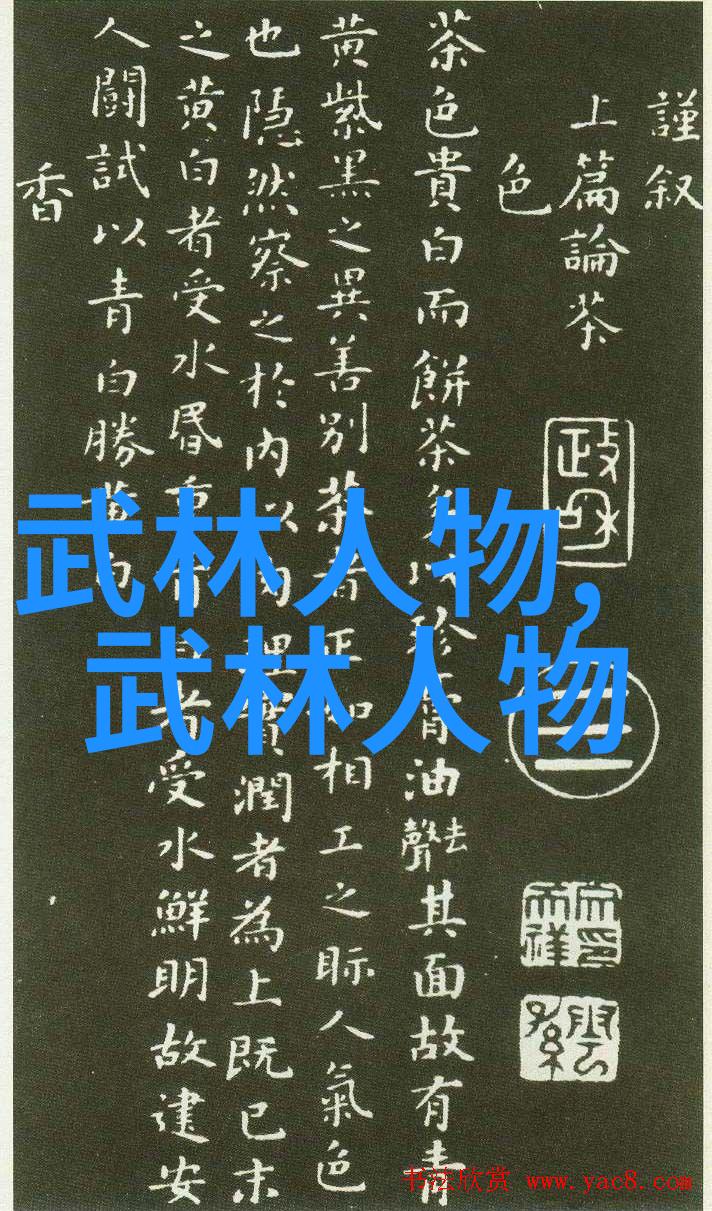 謹叙
上篇論茶
色
茶色貴白而餅茶多以珍膏油去聲其面故有青
黄紫黑之異善别茶者正如相工之眎人氣色
也隐然察之於内以肉理實潤者為上既已末
之黄白者受水昬重青白者受水鮮明故建安
人闘試以青白勝黄白
香
政和
武林人物,
武林人物
书法欣赏 www.yac8.com